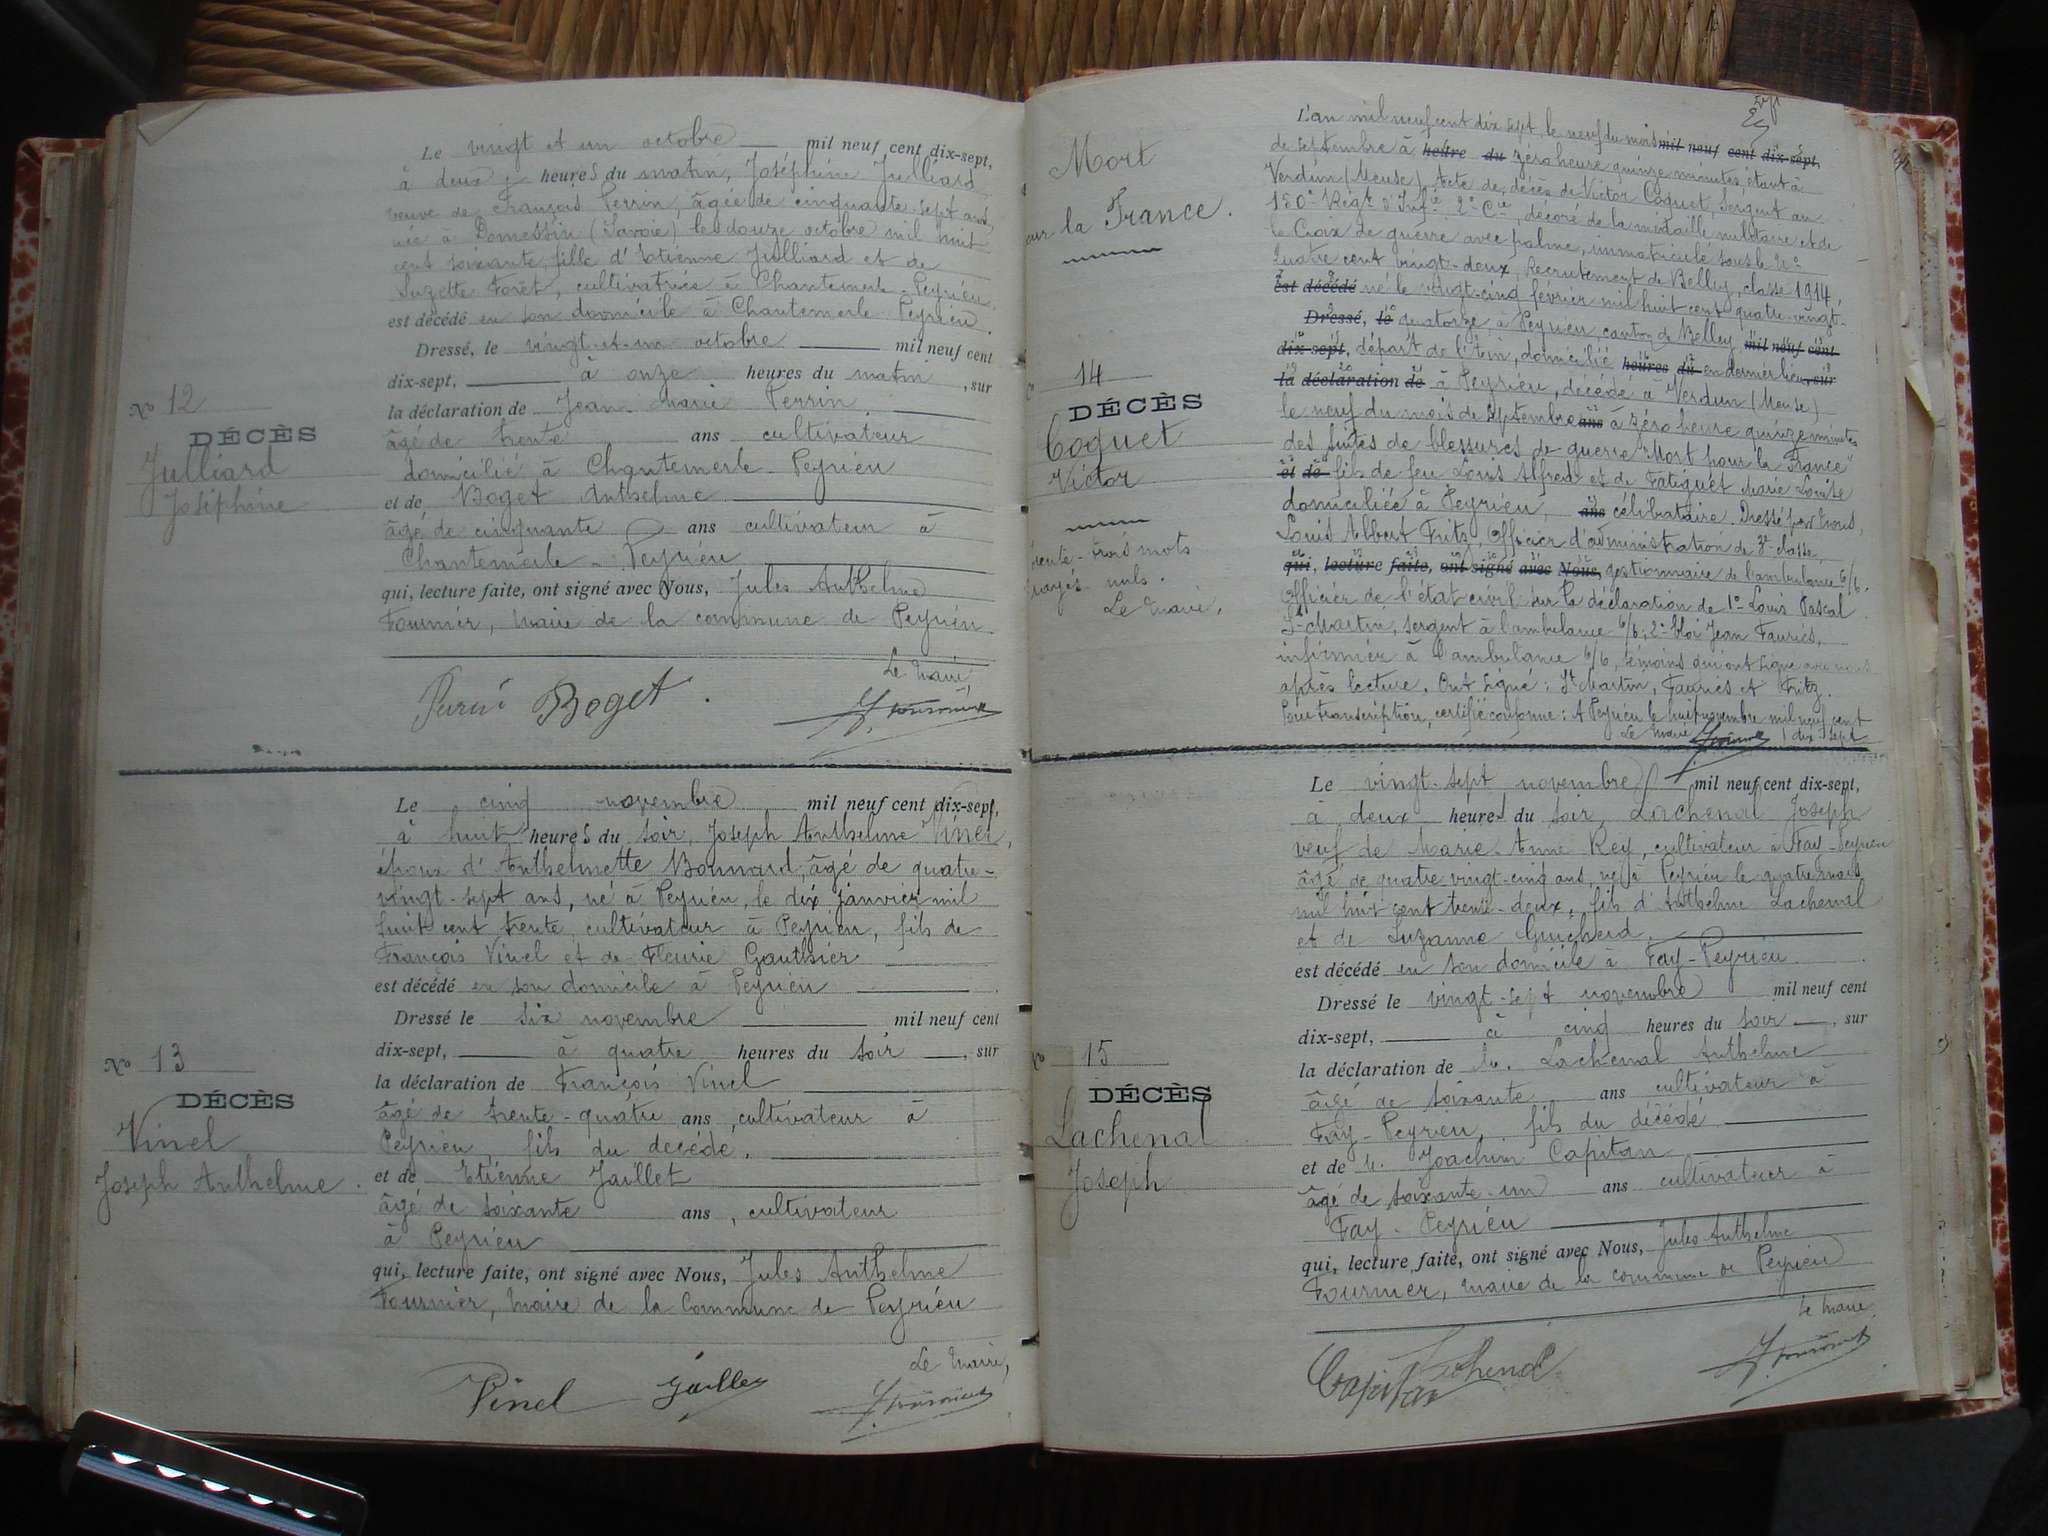 Le vingt et un octobre mil neuf cent dix-sept,
à deux heures du matin, Joséphine Julliard
veuve de François Perrin, âgée de cinquante-sept ans,
née à Domessin (Savoie) le douze octobre mil huit
cent soixante, fille d'Etienne Julliard et de
Suzette Foret, cultivatrice à Chantemerle-Peyrieu
est décédé en son domicile à Chantemerle Peyrieu.
Dressé, le vingt-et-un octobre mil neuf cent
dix-sept, à onze heures du matin, sur
la déclaration de Jean Marie Perrin
âgé de trente ans cultivateur
domicilié à Chantemerle-Peyrieu
et de Boget Anthelme
âgé de cinquante ans cultivateur à
Chantemerle-Peyrieu
qui, lecture faite, ont signé avec Nous, Jules Anthelme
Fournier, Maire de la commune de Peyrieu.
Le Maire,
Boget
No 12
DÉCÈS
Julliard
Joséphine
Le cinq novembre mil neuf cent dix-sept,
à huit heures du soir, Joseph Anthelme Vinel,
époux d'Anthelmette Bonnard, âgé de quatre-
vingt-sept ans, né à Peyrieu, le dix janvier mil
huit cent trente, cultivateur à Peyrieu, fils de
François Vinel et de Fleurie Gauthier
est décédé en son domicile à Peyrieu
Dressé le six novembre mil neuf cent
dix-sept, à quatre heures du soir, sur
la déclaration de François Vinel
âgé de trente-quatre ans, cultivateur à
Peyrieu, fils du décédé,
et de Etienne Jaillet
âgé de soixante ans, cultivateur
à Peyrieu
qui, lecture faite, ont signé avec Nous, Jules Anthelme
Fournier, Maire de la Commune de Peyrieu
Le Maire,
Vinel Jaillet
No 13
DÉCÈS
Vinel
Joseph Anthelme.
Mort
pour la France.
14
DÉCÈS
Coquet
Victor
trente-trois mots
rayés nuls.
Le Maire,
L'an mil neuf cent dix sept, le neuf du mois mil neuf cent dix-sept,
de septembre à heure du zéro heure quinze minutes, étant à
Verdun (Meuse) Acte de décès de Victor Coquet, Sergent au
Régt d'Infie, 2e Cie, décoré de la médaille militaire et de
la Croix de guerre avec palme, immatriculé sous le No
quatre cent vingt-deux, Recrutement de Belley, classe 1914,
est décédé né le vingt-cinq février mil huit cent quatre-vingt-
Dressé, le quatorze, à Peyrieu, canton de Belley mil neuf cent
dix-sept, départt de l'Ain, domicilié heures du en dernier lieu, sur
la déclaration de à Peyrieu, décédé à Verdun (Meuse)
le neuf du mois de septembre ans à zéro heure quinze minutes
des suites de blessures de guerre "Mort pour la France"
et de fils de feu Louis Alfred et de Fatiguet Marie Louise
domiciliée à Peyrieu, ans célibataire. Dressé par nous,
Louis Albert Fritz, Officier d'administration de 3e classe,
qui, lecture faite, ont signé avec Nous, gestionnaire de l'ambulance 6/6.
Officier de l'état civil sur la déclaration de 1o Louis Pascal
St Martin, Sergent à l'ambulance 6/6; 2o Eloi Jean Fauriès,
infirmier à l'ambulance 6/6, témoins qui ont signé avec nous
après lecture. Ont signé: St Martin, Fauriès et Fritz.
Pour transcription, certifié conforme: A Peyrieu le huit novembre mil neuf cent
dix sept
Le Maire
Le vingt-sept novembre mil neuf cent dix-sept,
à deux heures du soir, Lachenal Joseph
veuf de Marie-Anne Rey, cultivateur à Fay-Peyrieu
âgé de quatre vingt-cinq ans, né à Peyrieu le quatre mars
mil huit cent trente-deux, fils d'Anthelme Lachenal
et de Suzanne Guicherd,
est décédé en son domicile à Fay-Peyrieu
Dressé le vingt-sept novembre mil neuf cent
dix-sept, à cinq heures du soir, sur
la déclaration de M. Lachenal Anthelme
âgé de soixante ans cultivateur à
Fay-Peyrieu, fils du décédé
et de M. Joachim Capitan
âgé de soixante-un ans cultivateur à
Fay-Peyrieu
qui, lecture faite, ont signé avec Nous, Jules Anthelme
Fournier, Maire de la commune de Peyrieu
Le Maire,
Capitan Lachenal
No 15
DÉCÈS
Lachenal
Joseph